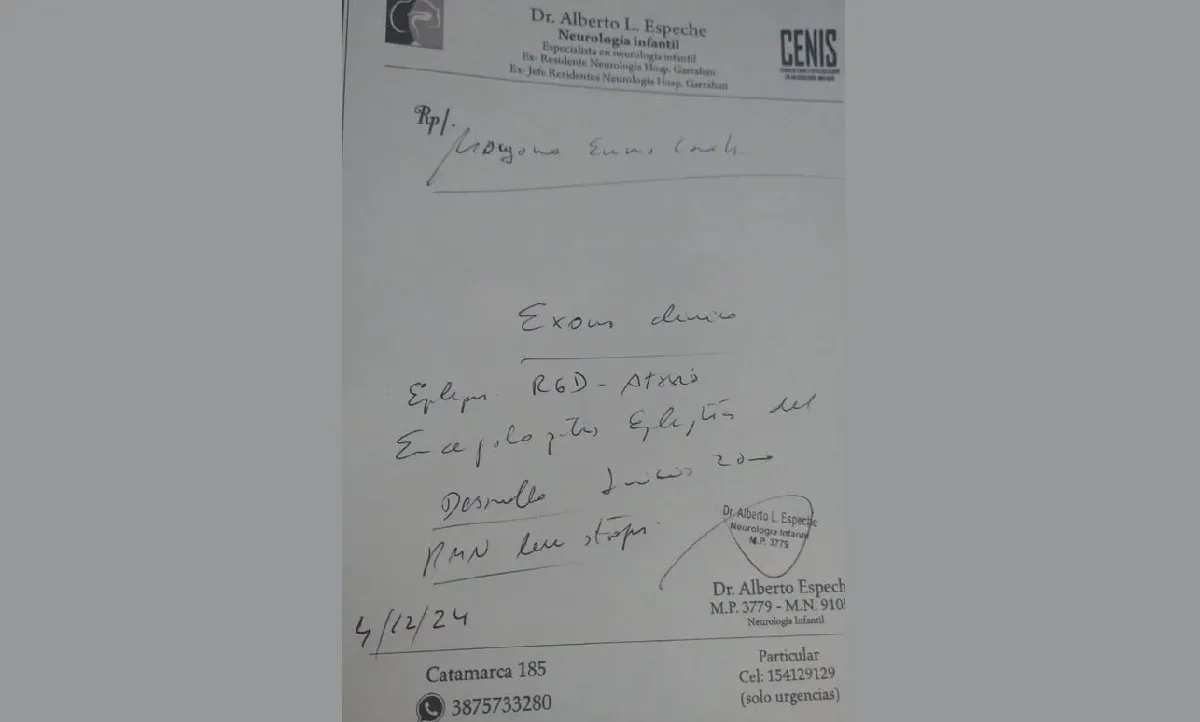 Dr. Alberto L. Espeche
Neurología infantil
Especialista en neurología infantil
Ex- Residente Neurología Hosp. Garrahan
Ex-Jefe Residentes Neurología Hosp. Garrahan
CENIS
Rp/.
Exoma clínico
Epilepsia RGD - Ataxia
Encefalopatía Epiléptica del
Desarrollo Inicio 2
RMN leve atrofia
Dr. Alberto L. Espeche
Neurología Infantil
M.P. 3779
Dr. Alberto Espech
M.P. 3779 - M.N. 910
Neurología Infantil
4/12/24
Catamarca 185
3875733280
Particular
Cel: 154129129
(solo urgencias)